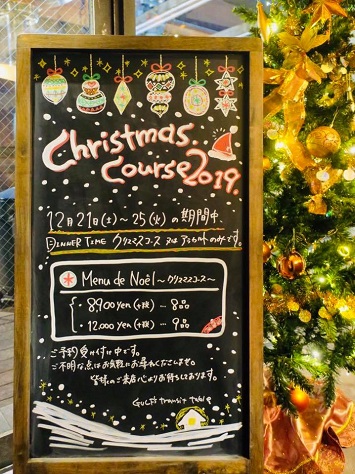 Christmas
Course 2019.
12月21日(土)~25(火)の期間中
DINNER TIMEクリスマスコース 又は アラカルトのみです。
Menu de Noël ~クリスマスコース~
・8,900 yen (+税) … 8品
・12,000 yen (+税) … 9品
ご予約受け付け中です。
ご不明な点はお気軽にお尋ねくださいませ。
皆様のご来店心よりお待ちしております。
transit table